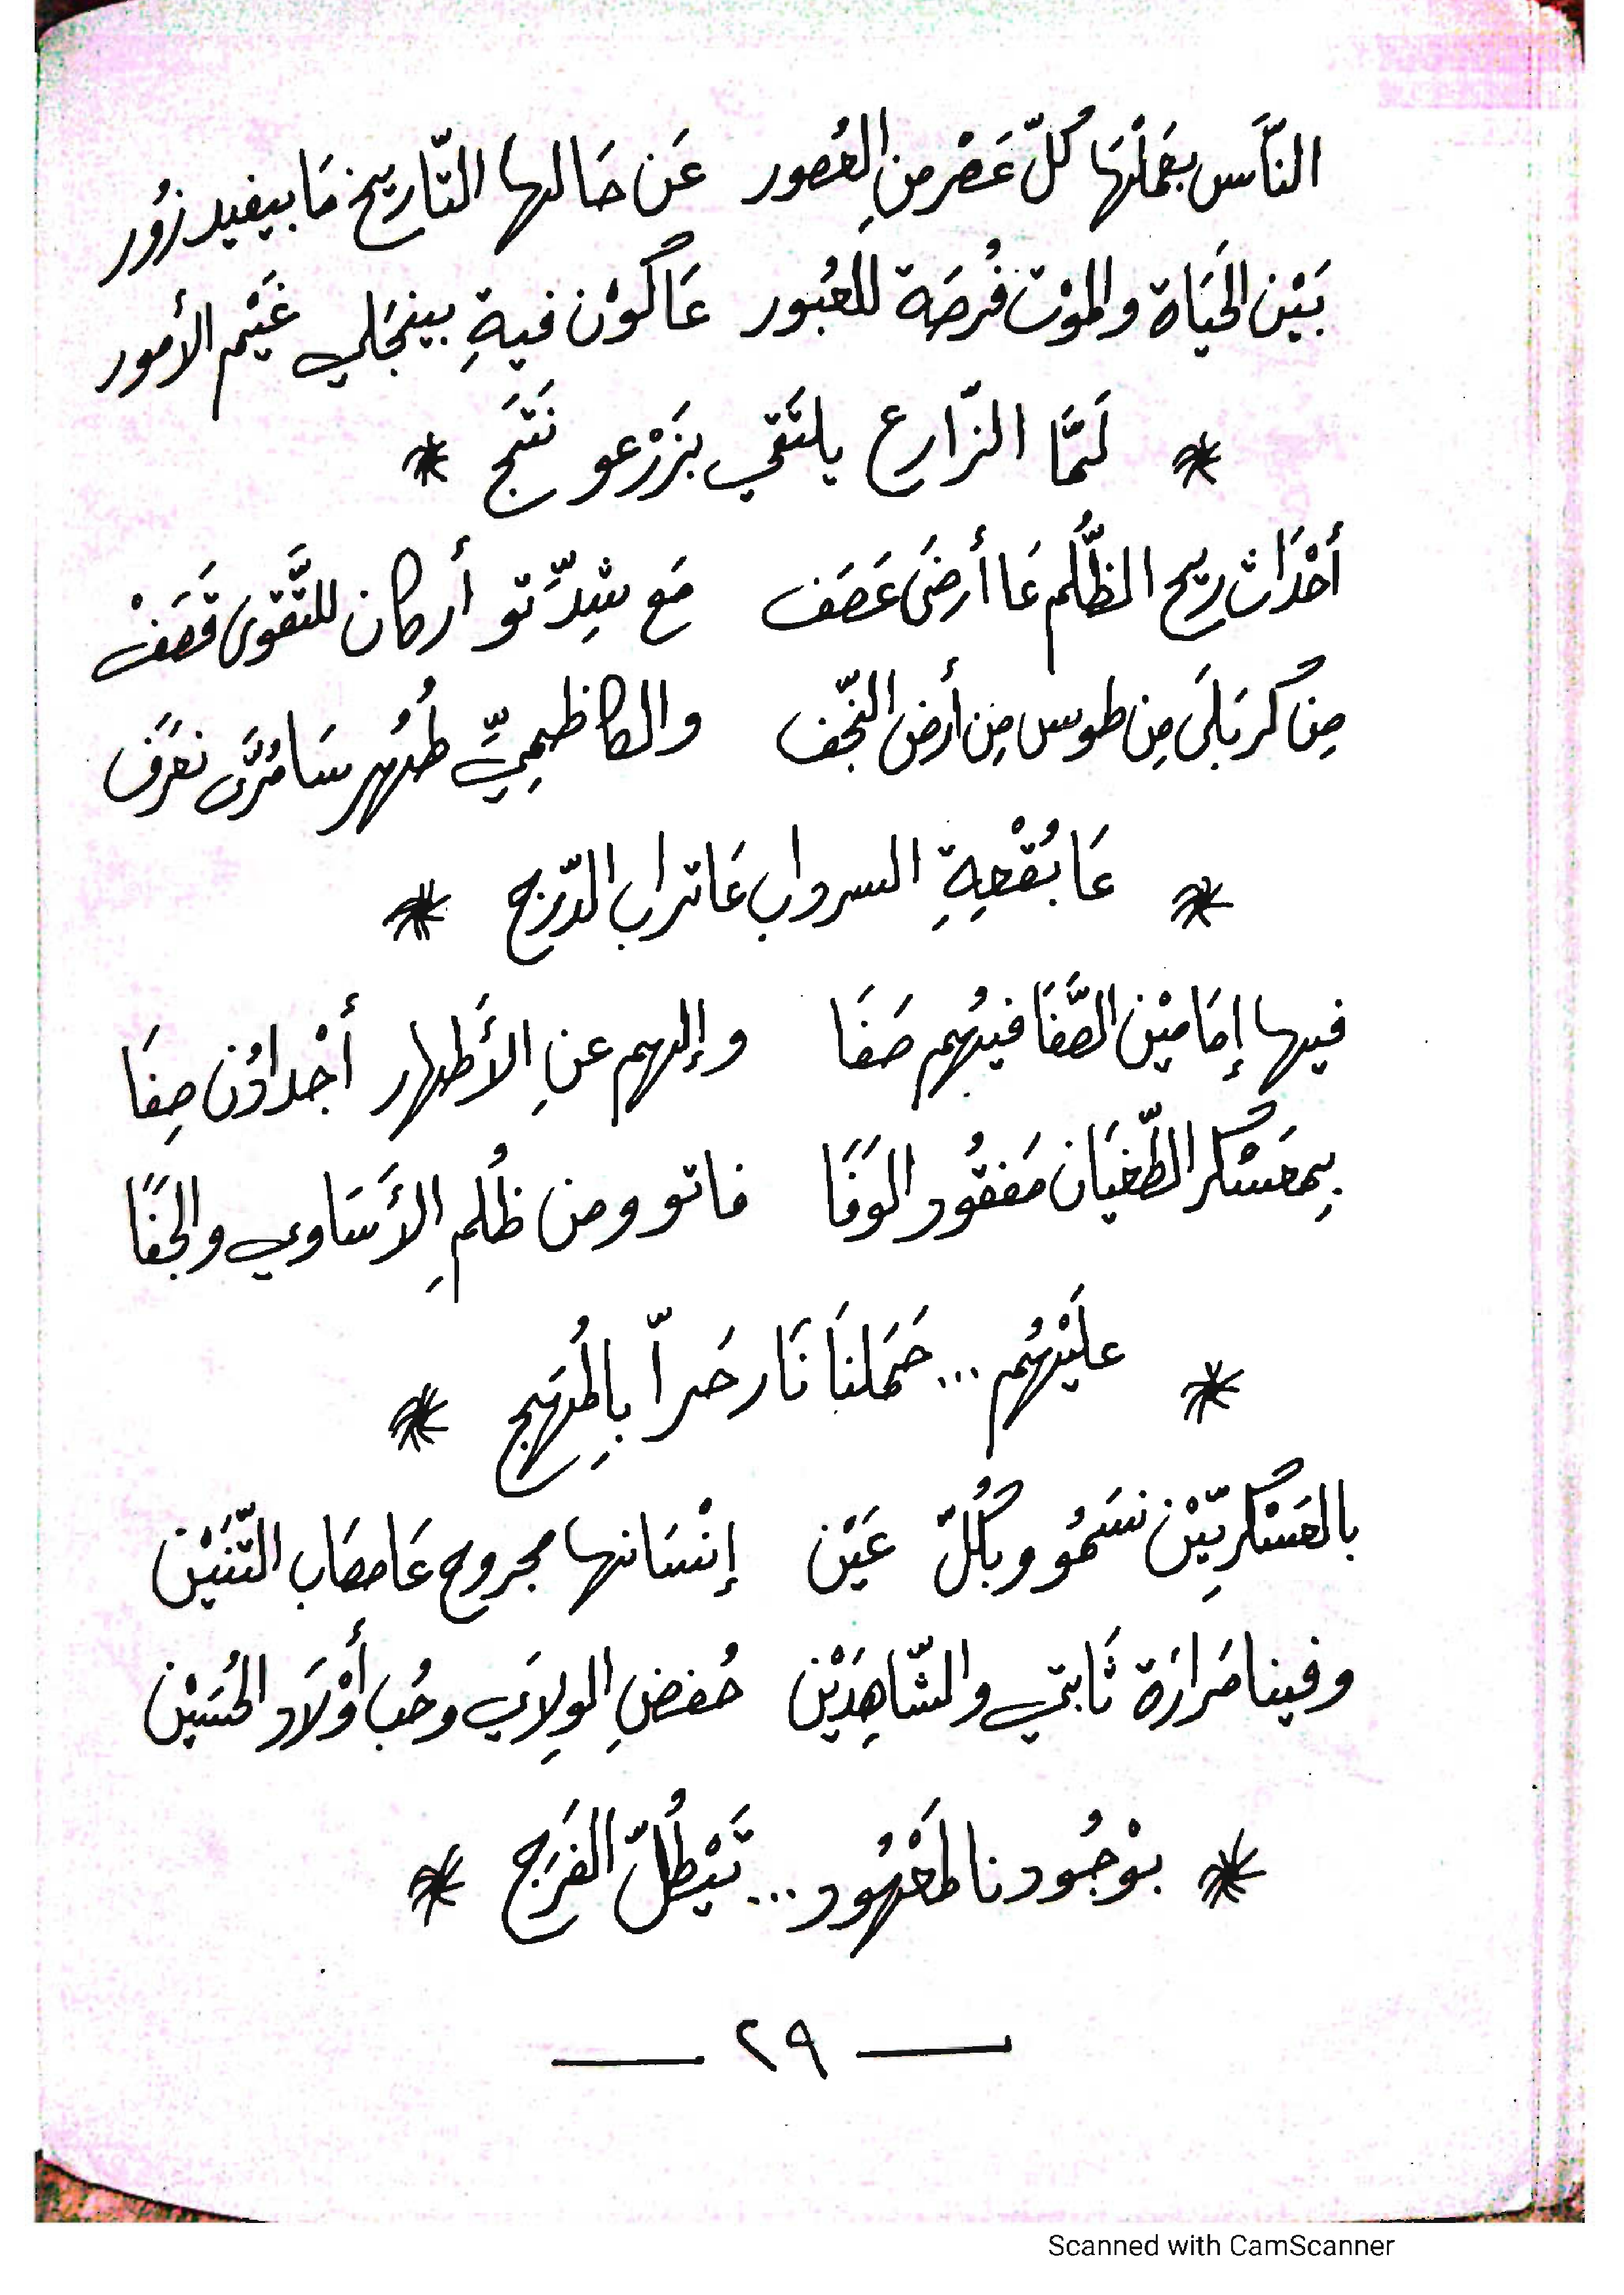 النَّاس بعَمَلْهَا كُلّ عَصْر منِ العُصور عَن حَالها التّاريخ مَا بيفيد زُور
بَيْن الحَيَاة والموْت فُرصَة للعُبور عَا كَوْن فيةِ بينجَلي غَيْم الأمور
* لَمَّا الزّارع يلتَقي بزَرْعو نَتَج *
أحْدَاث ريح الظُّلم عَا أرضَى عَصَف مَع شِدِّتو أركان للتَّقوى قَصَفْ
مِن كربَلَى مِن طوس مِن أرض النّجَف والكاظميِّي طُهر سَامُرَّى نعَرَف
* عَا بُقْعِةِ السرداب عَا تراب الدّرَج *
فيها إمَامَيْن الصَّفَا فيهُم صَفَا وإلهم عنِ الأَطهار أجْدادُن صِفَا
بِمعَسْكر الطّغيَان مَفقُود الوَفَا فاتو ومن ظُلمِ الأَسَاوي والجَفَا
* علَيْهُم ... حَمَلنَا نَار حَرّا بِالمُهَج *
بالعَسْكريِّيْن نسَمُو وبكُلّ عَيْن إنْسَانها مجروح عَا مصَاب التّنَيْن
وفينا مَرارَة ثَابتي والشّاهِدَيْن حُفضِ الولِاي وحُب أوْلَاد الحُسَيْن
* بوْجُودنا لمَعْهُود ... تَيْطُلّ الفَرَج *
— ٢٩ —
Scanned with CamScanner